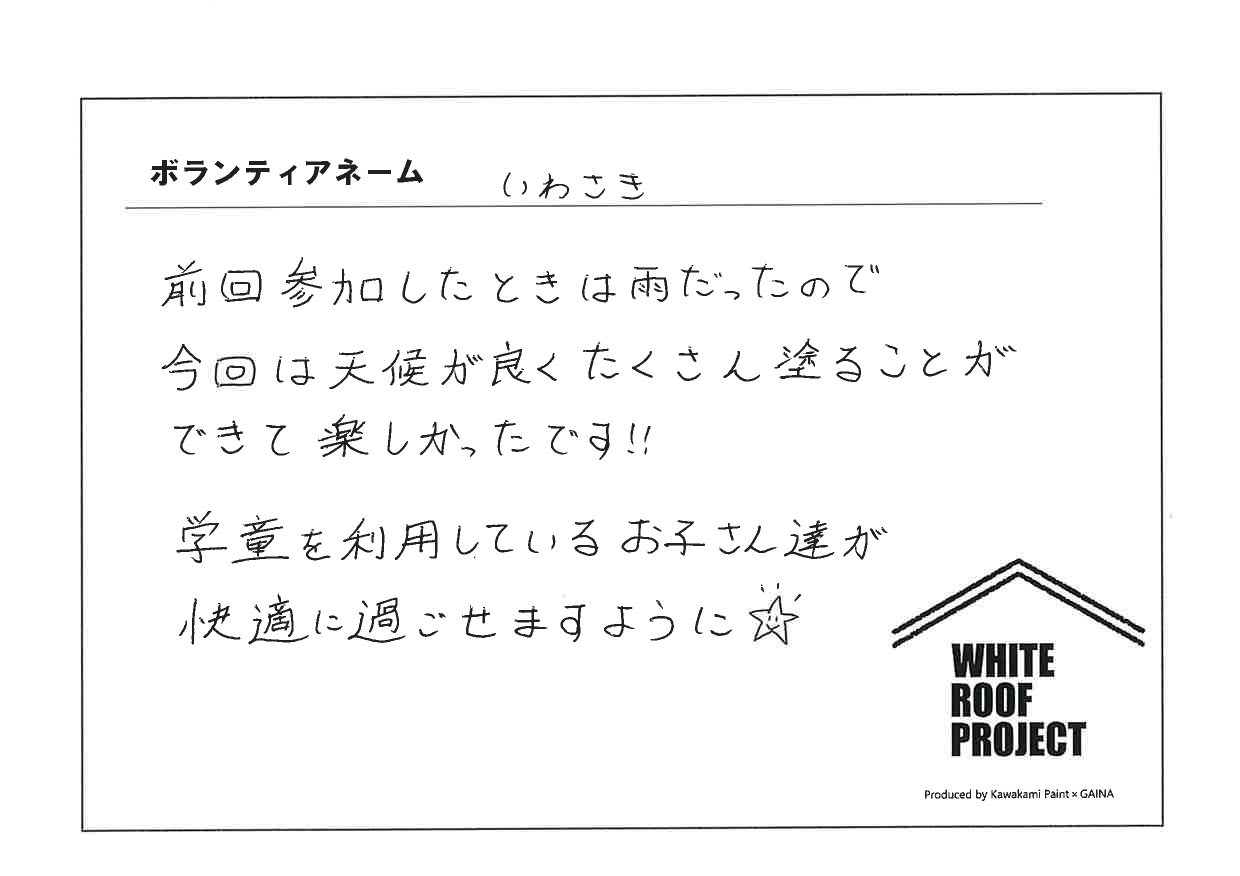 ボランティアネーム いわさき
前回参加したときは雨だったので
今回は天候が良くたくさん塗ることが
できて楽しかったです!!
学童を利用しているお子さん達が
快適に過ごせますように
WHITE
ROOF
PROJECT
Produced by Kawakami Paint × GAINA